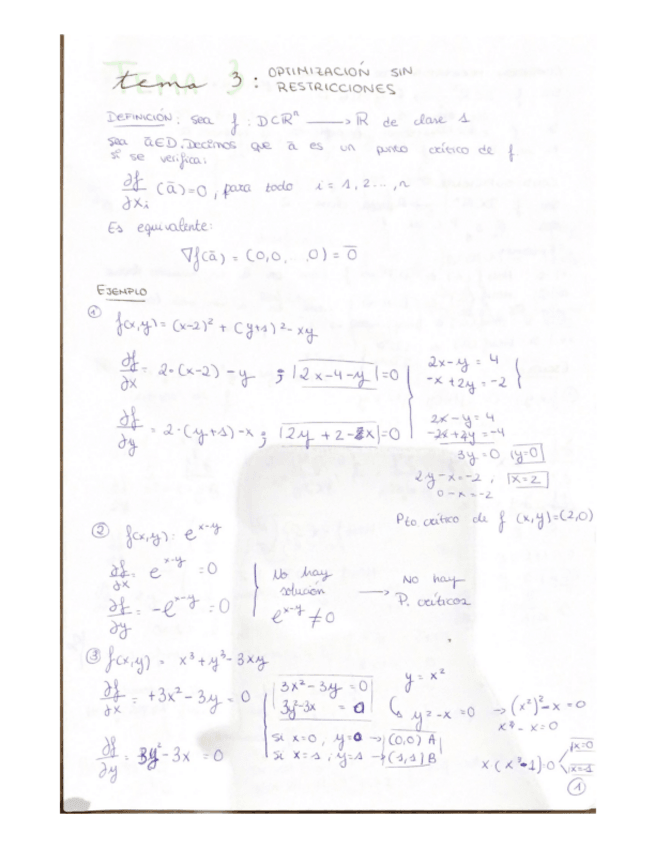 tema 3: OPTIMIZACIÓN SIN RESTRICCIONES
DEFINICIÓN: sea f: D⊂ℝⁿ ⟶ ℝ de clase 1
sea ā∈D. Decimos que ā es un punto crítico de f
si se verifica:
∂f/∂xᵢ (ā)=0, para todo i = 1, 2..., n
Es equivalente:
∇f(ā) = (0,0, ... 0) = 0̄
EJEMPLO
① f(x,y) = (x-2)² + (y+1)² - xy
∂f/∂x = 2·(x-2) - y ; |2x-4-y|=0
∂f/∂y = 2·(y+1)-x ; |2y+2-x|=0
2x-y = 4
-x+2y = -2
2x-y = 4
-2x+4y = -4
3y=0 |y=0|
2y-x=-2, |x=2|
0-x=-2
Pto crítico de f (x,y)=(2,0)
② f(x,y): e^(x-y)
∂f/∂x = e^(x-y) = 0
∂f/∂y = -e^(x-y) = 0
No hay solución
e^(x-y) ≠ 0
⟶ No hay P. críticos
③ f(x,y) = x³ + y³ - 3xy
∂f/∂x = +3x² - 3y = 0
∂f/∂y = 3y² - 3x = 0
3x² - 3y = 0
3y² - 3x = 0
si x=0, y=0 → (0,0) A
si x=1, y=1 → (1,1) B
y = x²
y² - x = 0 → (x²)² - x = 0
x⁴ - x = 0
x(x³-1)=0
x=0
x=1
①